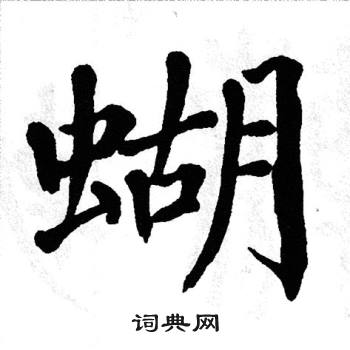 蝴
词典网